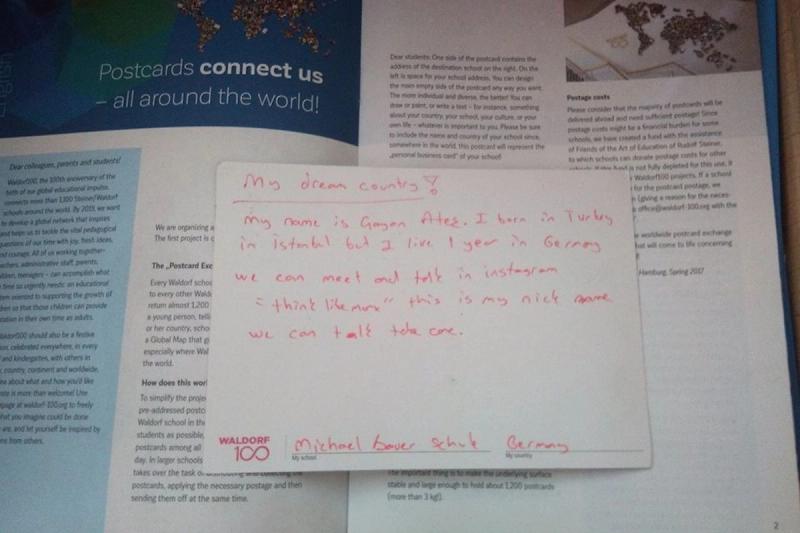 English
Postcards connect us
– all around the world!
Dear colleagues, parents and students!
Waldorf100, the 100th anniversary of the
birth of our global educational impulse,
connects more than 1,100 Steiner/Waldorf
schools around the world. By 2019, we want
to develop a global network that inspires
and helps us to tackle the vital pedagogical
questions of our time with joy, fresh ideas,
and courage. All of us working together–
teachers, administrative staff, parents,
children, teenagers – can accomplish what
time so urgently needs: an educational
oriented to supporting the growth of
so that those children can provide
in their own time as adults.
Waldorf100 should also be a festive
celebrated everywhere, in every
and kindergarten, with others in
country, continent and worldwide.
about what and how you'd like
is more than welcome! Use
page at waldorf-100.org to freely
what you imagine could be done
are, and let yourself be inspired by
from others.
We are organizing a
The first project is
The „Postcard Exc
Every Waldorf schoo
to every other Wald
return almost 1,200
a young person, telli
or her country, scho
a Global Map that g
especially where Wal
the world.
How does this wor
To simplify the proje
pre-addressed postc
Waldorf school in the
students as possible,
postcards among all
day. In larger schools
takes over the task of
postcards, applying the necessary postage and then
sending them off at the same time.
Dear students: One side of the postcard contains the
address of the destination school on the right. On the
left is space for your school address. You can design
the main empty side of the postcard any way you want.
The more individual and diverse, the better! You can
draw or paint, or write a text – for instance, something
about your country, your school, your culture, or your
own life – whatever is important to you. Please be sure
to include the name and country of your school since,
somewhere in the world, this postcard will represent the
„personal business card" of your school!
The important thing is to make the underlying surface
stable and large enough to hold about 1,200 postcards
(more than 3 kg!).
Postage costs
Please consider that the majority of postcards will be
delivered abroad and need sufficient postage! Since
postage costs might be a financial burden for some
schools, we have created a fund with the assistance
of Friends of the Art of Education of Rudolf Steiner,
to which schools can donate postage costs for other
is not fully depleted for this use, it
Waldorf100 projects. If a school
for the postcard postage, we
(giving a reason for the neces-
office@waldorf-100.org with the
worldwide postcard exchange
that will come to life concerning
Hamburg, Spring 2017
2
My dream country
my name is Ateş. I born in Turkey
in istanbul but I live 1 year in Germoy
we can meet and talk in instagram
this is my nick name
we can talk take care.
WALDORF
100
Michael bauer Schule
My school
Germany
My country